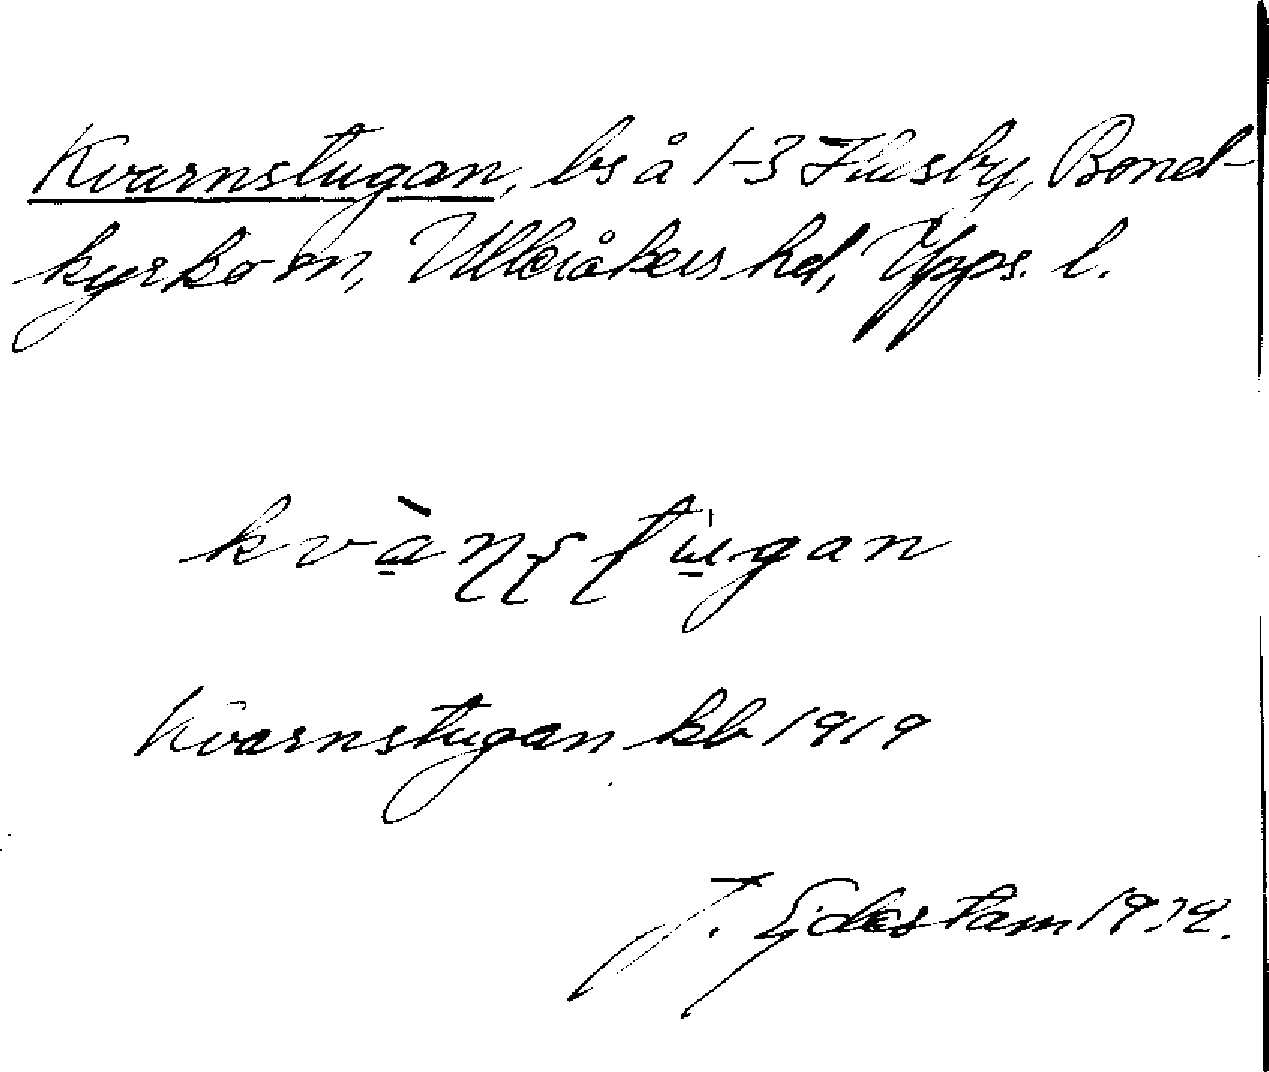 Kvarnstugan, bs å 1-3 Husby, Bond-
kyrko sn, Ulleråkers hd, Upps. l.
kvànstùgan
Kvarnstugan kb 1919
J. Ejdestam 1934.